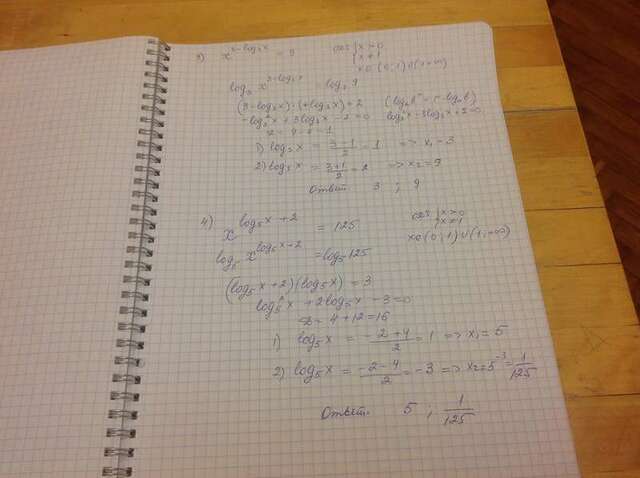 3) x^(3-log₃x) = 9 ОДЗ { x>0
x≠1
x∈(0;1)∪(1;+∞)
log₃ x^(3-log₃x) log₃ 9
(3-log₃x)·(log₃x)=2 (logₐbⁿ = n·logₐb)
-log₃²x+3log₃x-2=0 log₃²x-3log₃x+2=0
D = 9-8=1
1) log₃x = (3-1)/2 = 1 => x₁=3
2) log₃x = (3+1)/2 = 2 => x₂=9
Ответ 3 ; 9
4) x^(log₅x+2) = 125 ОДЗ { x>0
x≠1
x∈(0;1)∪(1;+∞)
log₅ x^(log₅x-2) = log₅125
(log₅x+2)(log₅x)=3
log₅²x+2log₅x-3=0
D= 4+12=16
1) log₅x = (-2+4)/2 = 1 => x₁=5
2) log₅x = (-2-4)/2 = -3 => x₂=5⁻³=1/125
Ответ. 5 ; 1/125